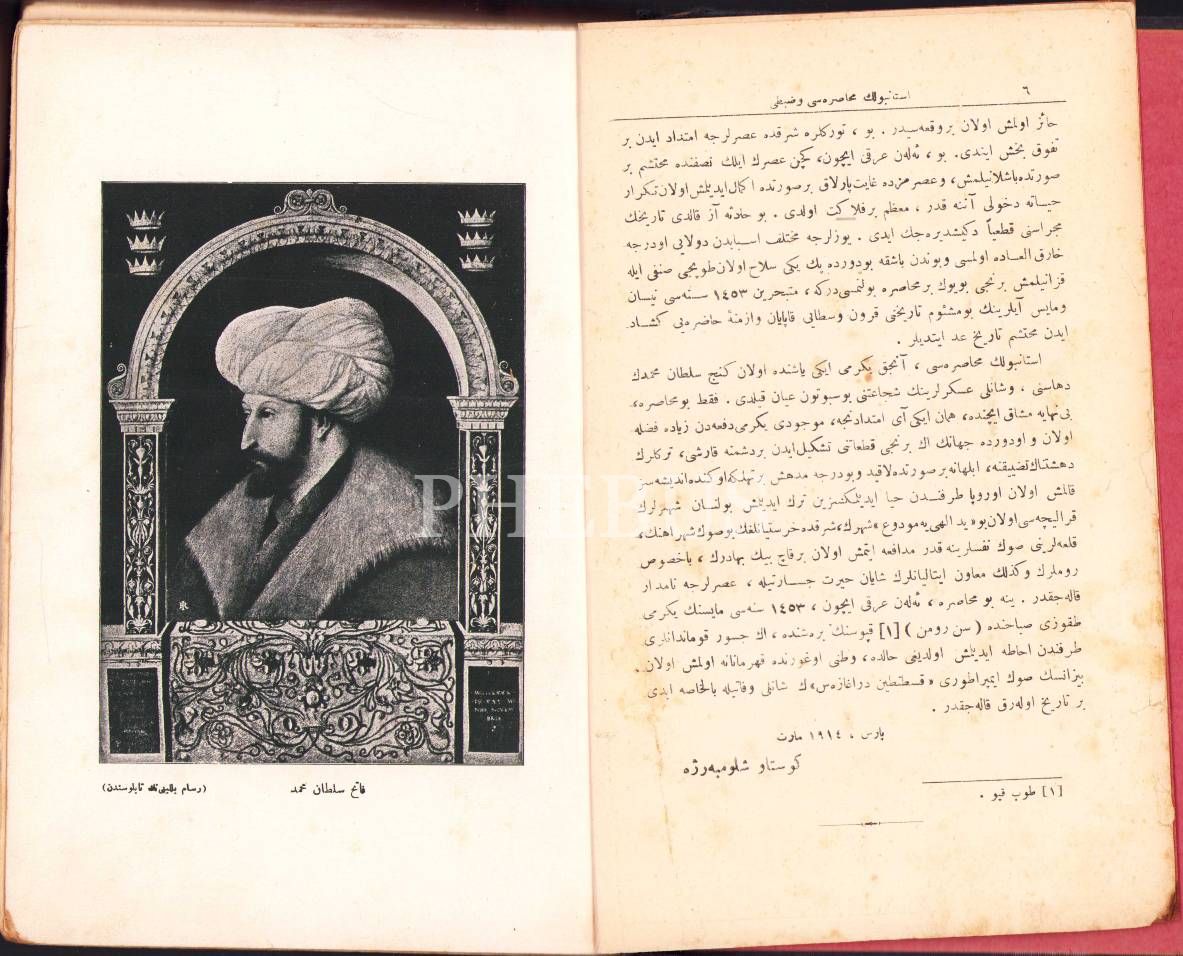 فاتح سلطان محمد
(رسام بللینی‌نك تابلوسندن)
PHEBUS
٦
استانبولك محاصره‌سی وضبطی
حائز اولمش اولان بروقعه‌سیدر . بو ، تورکلره شرقده عصرلرجه امتداد ایدن بر
تفوق بخش ایتدی. بو ، ئه‌له‌ن عرقی ایچون، کچن عصرك ایلك نصفنده محتشم بر
صورتده‌باشلانیلمش، وعصر مزده غایت‌پارلاق برصورتده اکمال ایدیلمش اولان‌تکرار
حیاته دخولی آننه قدر ، معظم برفلاکت اولدی . بو حادثه آز قالدی تاریخك
مجراسنی قطعیاً دکیشدیره‌جك ایدی . یوزلرجه مختلف اسبابدن دولایی اودرجه
خارق‌العاده اولمسی وبوندن باشقه بودورده پك یکی سلاح اولان‌طوپجی صنفی ایله
قزانیلمش برنجی بویوك بر محاصره بولنمسی‌درکه، متبحرین ١٤٥٣ سنه‌سی نیسان
ومایس آیلرینك بومشئوم تاریخنی قرون وسطایی قاپایان وازمنهٔ حاضره‌یی کشاد
ایدن محتشم تاریخ عد ایتدیلر .
استانبولك محاصره‌سی ، آنجق یکرمی ایکی یاشنده اولان کنج سلطان محمدك
دهاسنی ، وشانلی عسکرلرینك شجاعتنی بوسبوتون عیان قیلدی . فقط بومحاصره،
بی‌نهایه مشاق ایچنده، همان ایکی آی امتدادنجه، موجودی یکرمی‌دفعه‌دن زیاده فضله
اولان و اودورده جهانك اك برنجی قطعاتنی تشکیل‌ایدن بردشمنه قارشی، ترکلرك
دهشتناك‌تضییقنه، ابلهانه‌برصورتده‌لاقید وبودرجه مدهش برتهلکه‌اوکنده‌اندیشه‌سز
قالمش اولان اوروپا طرفندن حیا ایدیلکسزین ترك ایدیلمش بولنان شهرلرك
قرالیچه‌سی‌اولان‌بو«ید الهی‌یه‌مودوع»شهرك،شرقده‌خرستیانلغك‌بوصوك‌شهراهنك،
قلعه‌لرینی صوك نفسلرینه قدر مدافعه ایتمش اولان برقاچ بیك بهادرك ، باخصوص
روملرك وکذلك معاون ایتالیانلرك شایان حیرت جسارتیله ، عصرلرجه نامدار
قاله‌جقدر . ینه بو محاصره ، ئه‌له‌ن عرقی ایچون ، ١٤٥٣ سنه‌سی مایسنك یکرمی
طقوزی صباحنده ( سن رومن ) [١] قپوسنك بره‌شنده، اك جسور قوماندانلری
طرفندن احاطه ایدیلمش اولدیغی حالده، وطنی اوغورنده قهرمانانه اولمش اولان
بیزانسك صوك ایمپراطوری «قسطنطین دراغازه‌س»ك شانلی وفاتیله بالخاصه ابدی
بر تاریخ اوله‌رق قاله‌جقدر .
پارس ، ١٩١٤ مارت
کوستاو شلومبه‌رژه
[١] طوپ قپو .